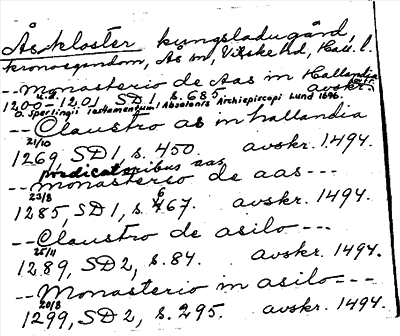 Åskloster kungsladugård,
kronoegendom, Ås sn, Viske hd, Hall. l.
-- Monasterio de Aas in Hallandia
1200-1201 SD 1 s. 685. avskr.
O. Sperlingii Testamentum Absolonis Archiepiscopi Lund 1696
-- Claustro as in hallandia
21/10
1269, SD 1, s. 450. avskr. 1494.
predicatoribus aas
-- monasterio de aas ---
23/8 6
1285, SD 1, s. 467. avskr. 1494.
-- Claustro de asilo ---
25/11
1289, SD 2, s. 84. avskr. 1494.
-- Monasterio in asilo ---
20/8
1299, SD 2, s. 295. avskr. 1494.